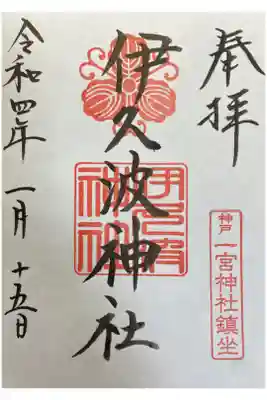 奉拝
伊久波神社
伊久波
神社
神戸 一宮神社鎮坐
令和四年 一月 十五日